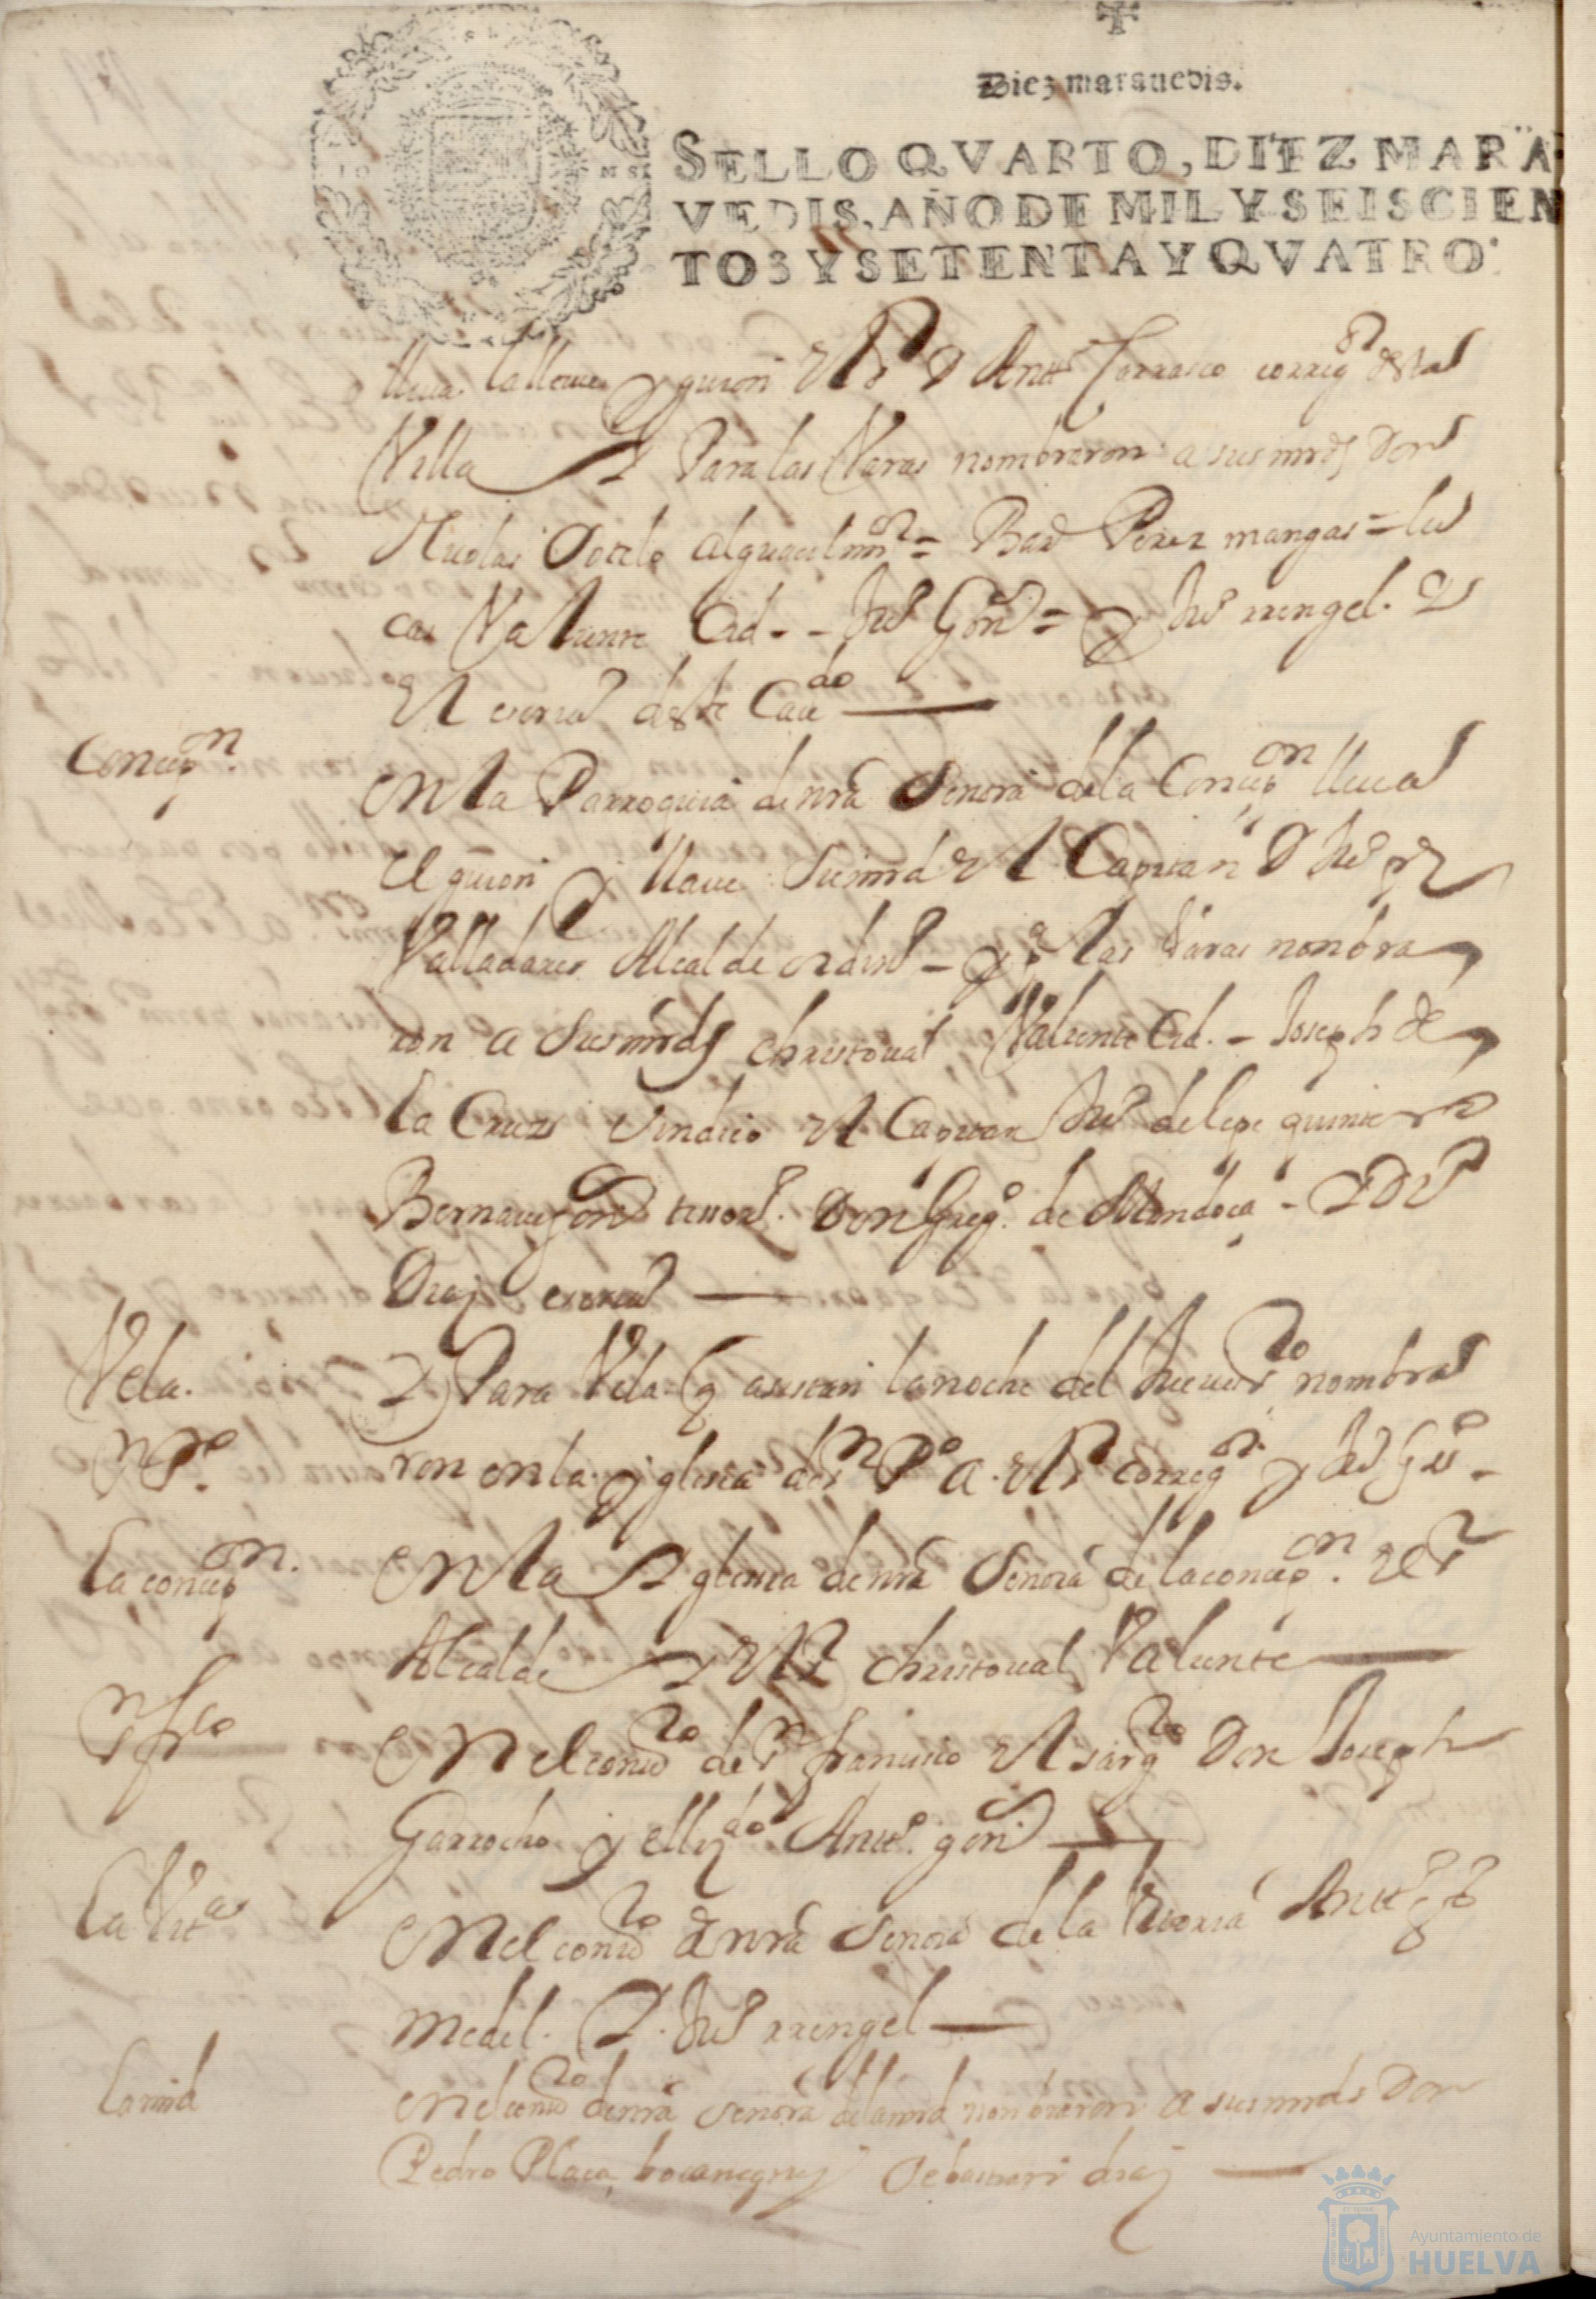 Diez marauedis.
SELLO QVARTO, DIEZ MARA
VEDIS, AÑO DE MIL Y SEISCIEN
TOS Y SETENTA Y QVATRO.
lleua la llaue y guion el sr D Antto Carrasco corregor desta
Villa Y Para las Varas nombraron a sus mrds Don
Nicolas Sotelo alguacil mor = Bar Perez mangas = lu
cas Valiente Cid - - Juo Gonz = y Juo rrengel. Y
El escriuo deste Caudo
Concepon. en la Parroquia de nra Senora de la Concepon lleua
el guion y llaue su md el Capitan D Juo
Valladares Alcalde ordino - y pa las Varas nonbra
ron a sus mrds christoual Valiente Cid. - Joseph de
la Cruz sindico el Capitan Juo de lepe quintero
Bernaue gonz Don Grego. de Mendoça -
Diaz escriuo
Vela. Y Para Vela q asistan la noche del Jueues sto nombra
Sn Po. ron en la yglesia de sn Po a el sr corregor y Juo
La concepon. en la Yglesia de nra Senora de la concepon. el sr
Alcalde Y el sr christoual Valiente
sn frco en el conuto de sn francisco el sargto Don Joseph
Garrocho y el lizdo Antto. gonz
La Vita en el conuto de nra Senora de la Vitoria Antto
medel. Y. Juo rrengel
La md en el conuto de nra senora de la md nonbraron a sus mrds Don
Pedro Plaça bocanegra y Sebastian diaz
Ayuntamiento de
HUELVA